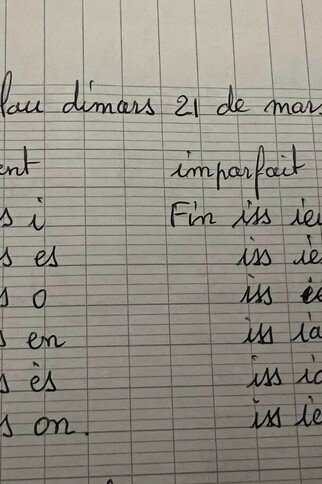 lau dimars 21 de mars
ent imparfait
s i Fin iss ieu
s es iss ie
s o iss
s en iss ia
s ès iss ia
s on. iss ie